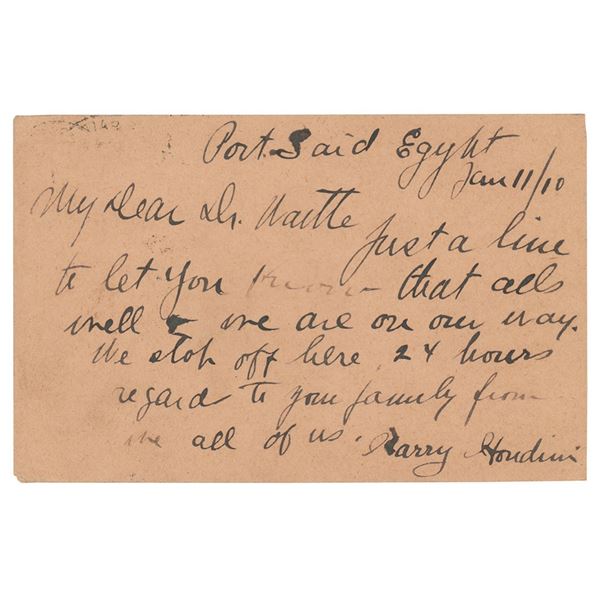 Port Said Egypt
Jan 11/10
My Dear Dr. Waitte
Just a line
to let you know that alls
well & we are on our way.
We stop off here 24 hours
regard to your family from
me all of us.
Harry Houdini